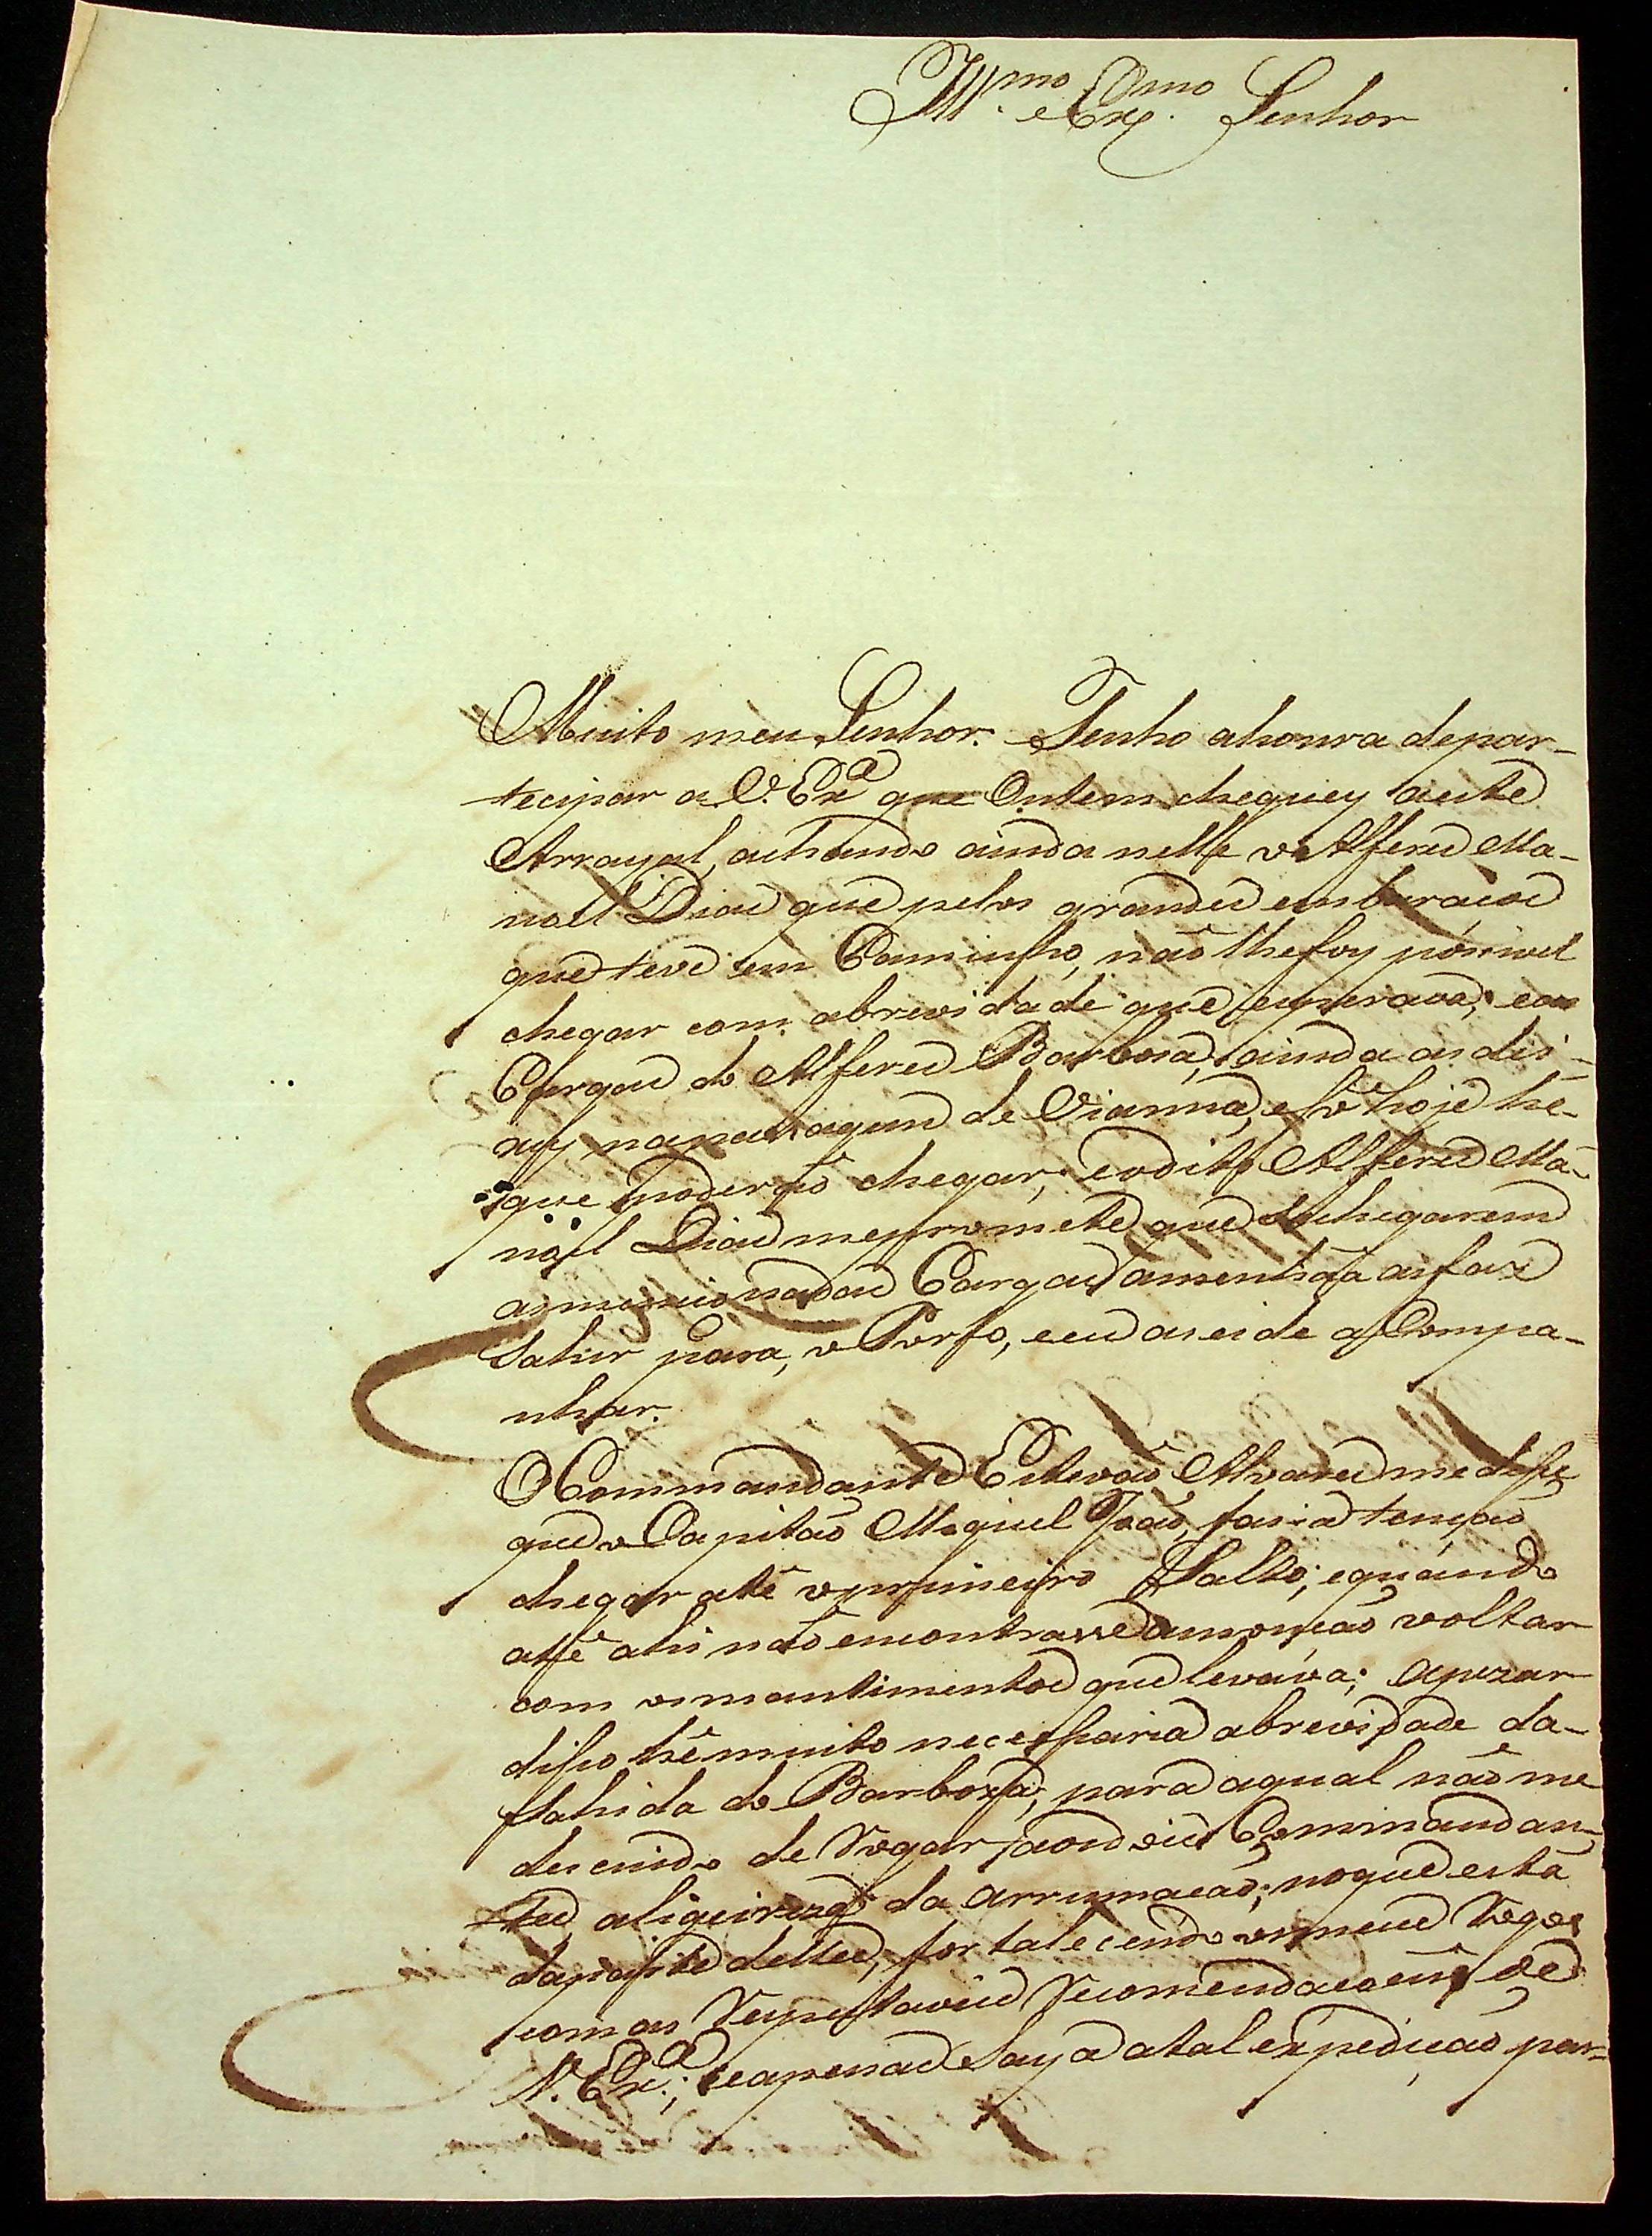 Ill.mo e Ex.mo Senhor
Muito meu Senhor. Tenho ahonra depar-
tecipar a V. Exa que Ontem cheguey aeste
Arrayal, achando ainda nelle o Alferes Ma-
noel Dias que pelos grandes embaraços
que teve em Caminho, não lhe foy póssivel
chegar com abrevidade que esperava; eas
Cargas do Alferes Barbosa, ainda as dei-
xey napassagem de Vianna, e só hoje he-
que poderão chegar; eodito Alferes Ma-
noel Dias mepromete que se chegarem
asmencionadas Cargas amenhãa asfaz
Sahir para, o Porto, eeu as ei de aCompa-
nhar.
OCommandante Estevaõ Alvares me disse
que o Capitão Miguel João, fazia tenção
chegar até oprimeiro Salto; equando
até ahi não encontrasse amonção voltar
com osmantimentos que levava; apezar
disso hé muito necessaria abrevidade da-
Sahida do Barboza, para aqual não me
descuido de Rogar aos Commandan-
tes, aligeireza da arrumacão; noque está
daparte delles, fortalecendo osmeus Rogos
com as Respeitaveis Recomendacoens de
V. Exa.; eapenas Saya atal expedição par-